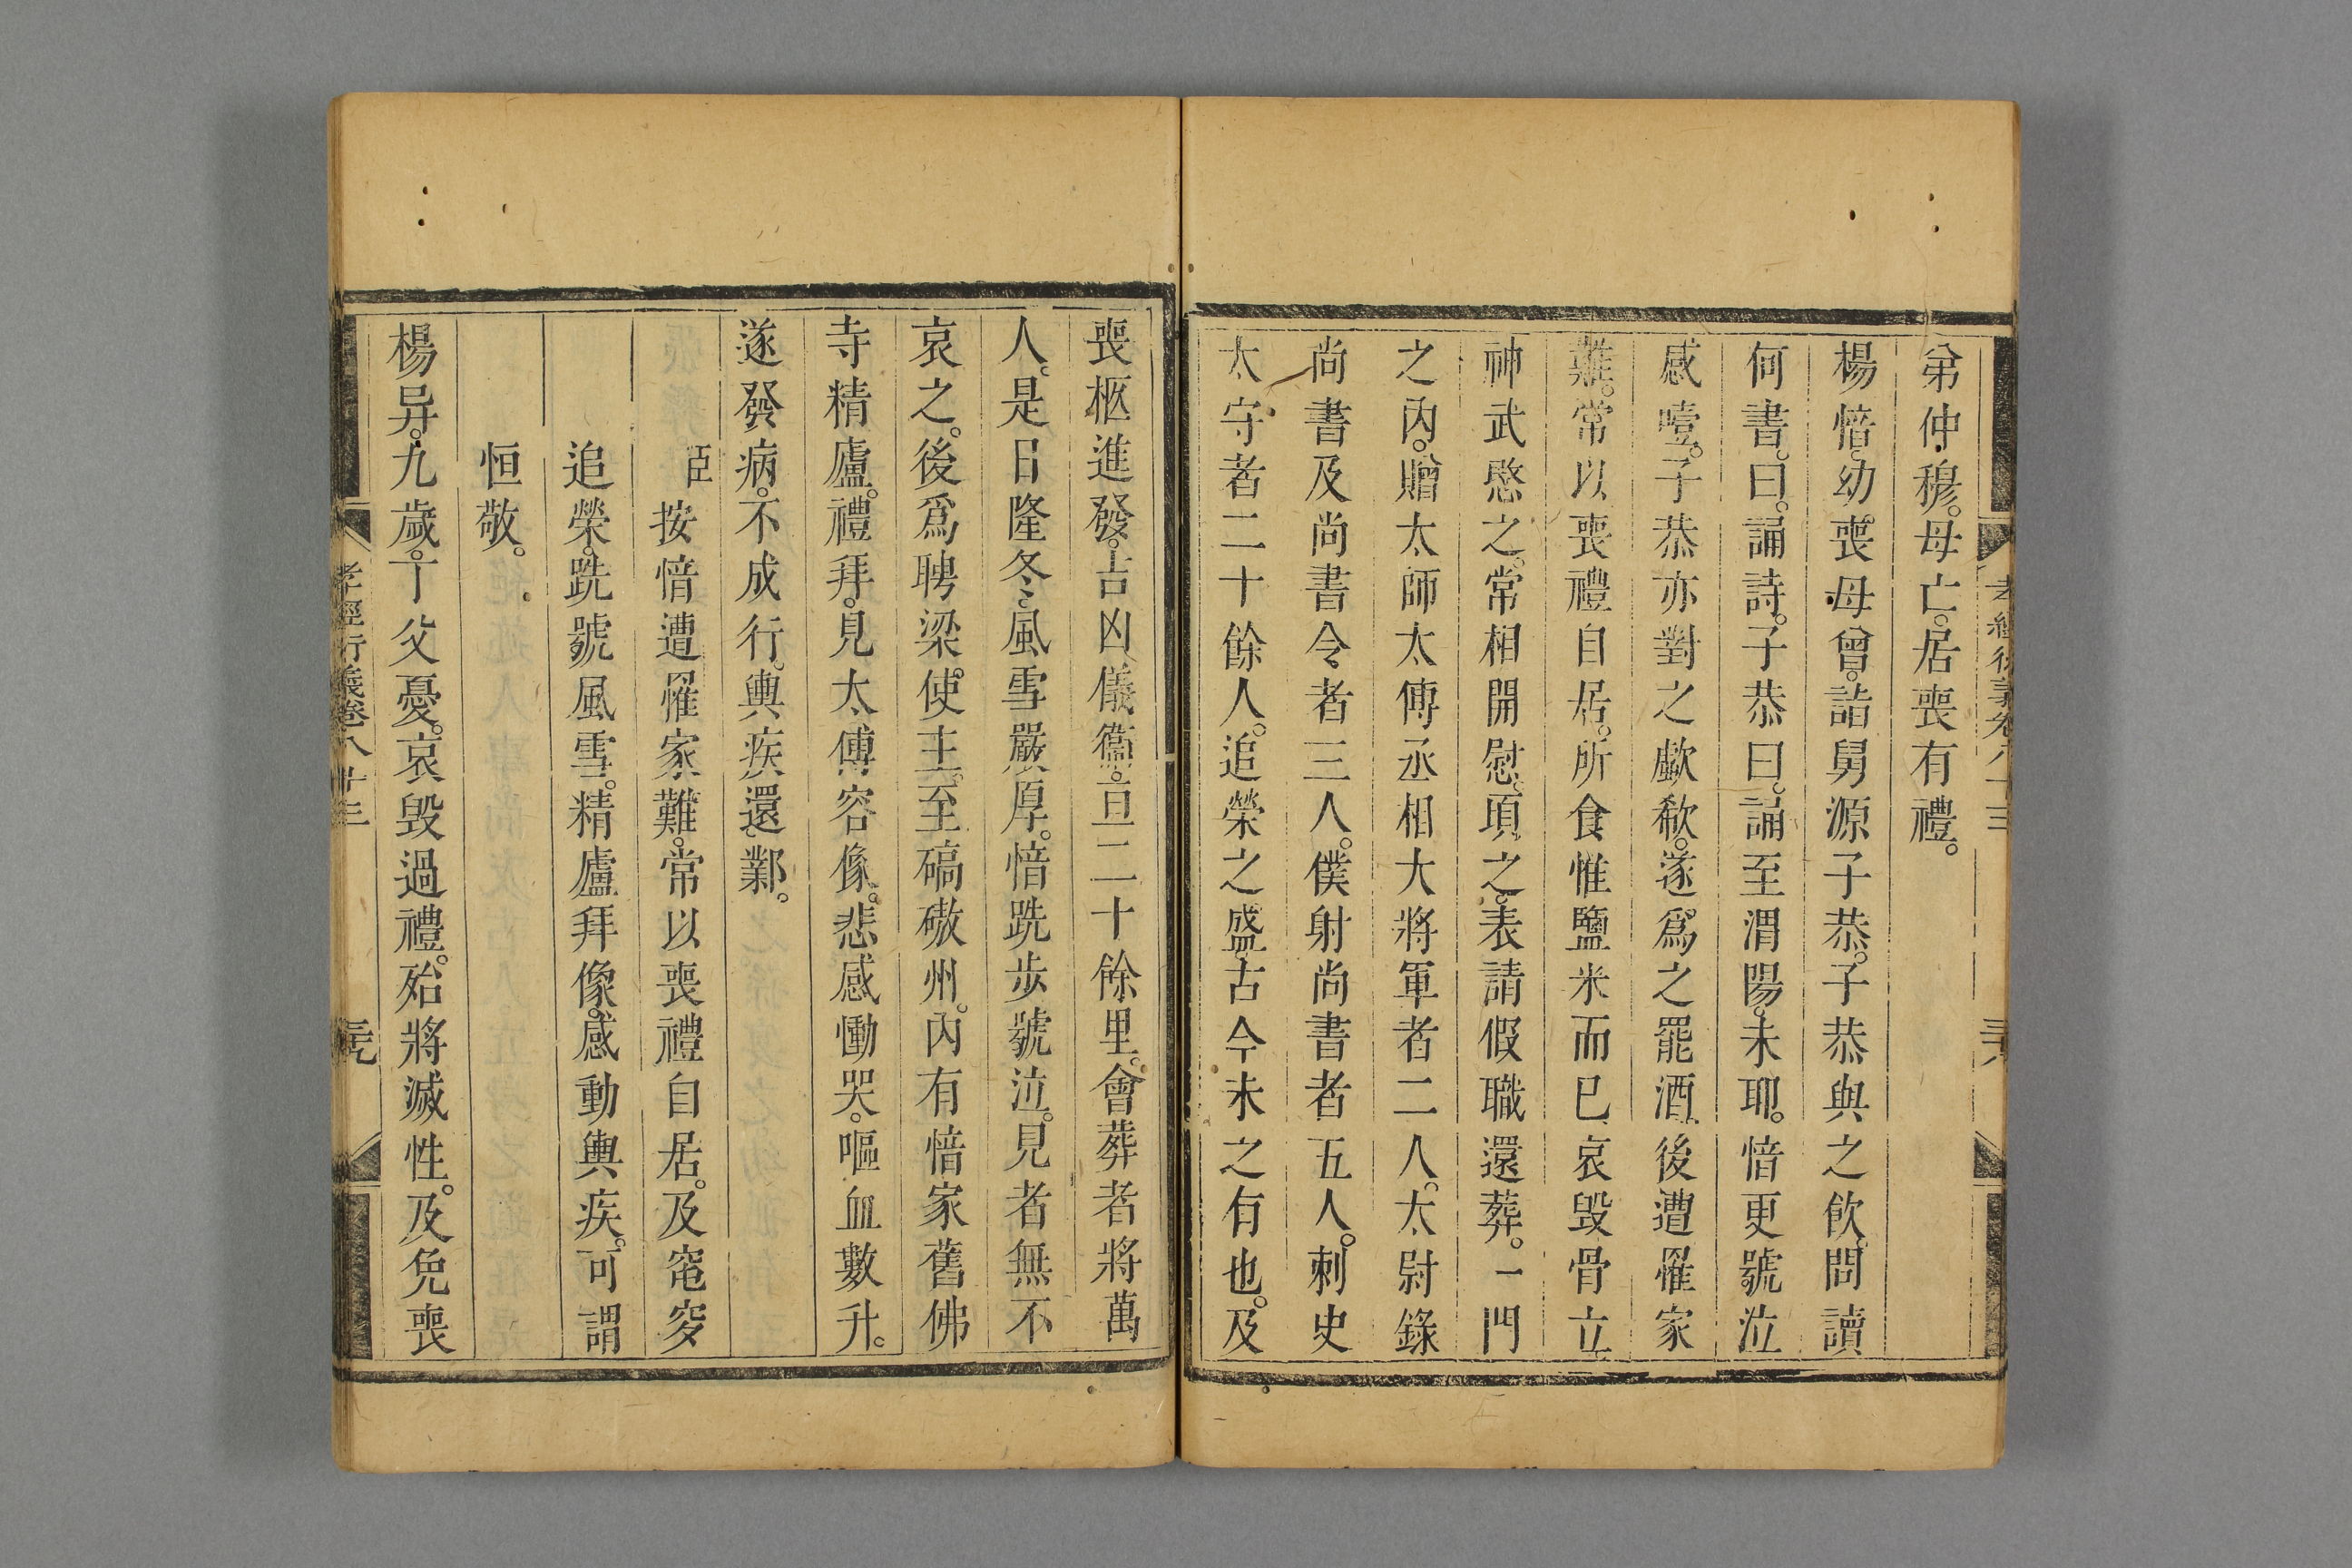 弟仲穆。母亡。居喪有禮。
楊愔。幼喪母。曾詣舅源子恭。子恭與之飲。問讀
何書。曰。誦詩。子恭曰。誦至渭陽。未耶。愔更號泣
感噎。子恭亦對之歔欷。遂爲之罷酒。後遭罹家
難。常以喪禮自居。所食惟鹽米而已。哀毀骨立。
神武愍之。常相開慰。頃之。表請假職還葬。一門
之內。贈太師太傅丞相大將軍者二人。太尉錄
尚書及尚書令者三人。僕射尚書者五人。刺史
太守者二十餘人。追榮之盛。古今未之有也。及
喪柩進發。吉凶儀衞。亘二十餘里。會葬者將萬
人。是日隆冬。風雪嚴厚。愔跣步號泣。見者無不
哀之。後爲聘梁使主。至碻磝州。內有愔家舊佛
寺精廬。禮拜。見太傅容像。悲感慟哭。嘔血數升。
遂發病。不成行。輿疾還鄴。
臣按愔遭罹家難。常以喪禮自居。及窀穸
追榮。跣號風雪。精廬拜像。感動輿疾。可謂
恒敬。
楊异。九歲。丁父憂。哀毀過禮。殆將滅性。及免喪
孝經衍義卷八十三